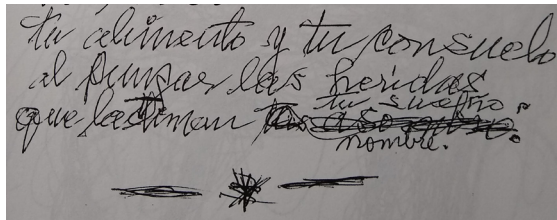 tu alimento y tu consuelo
al pungar las heridas
que lastiman tu sueño
nombre.